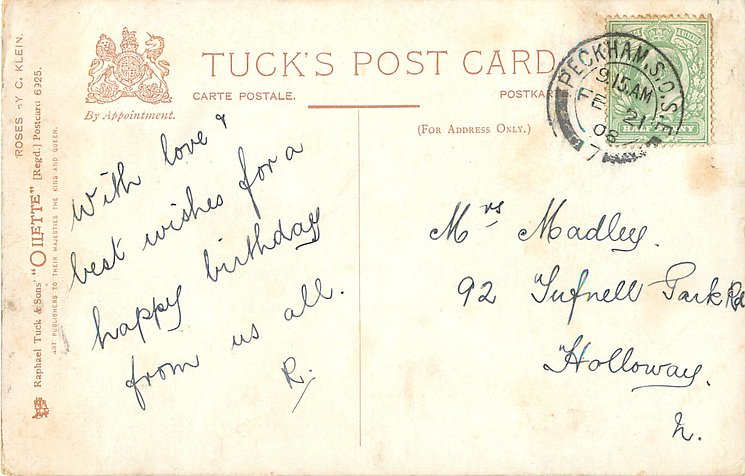 TUCK'S POST CARD
CARTE POSTALE.
By Appointment.
(FOR ADDRESS ONLY.)
PECKHAM, S.O.S.E.
9.15 AM
21
06
7
HALF PENNY
With love &
best wishes for a
happy birthday
from us all.
R.
Mrs Madley.
92 Tufnell Park Rd
Holloway.
N.
ROSES BY C. KLEIN.
Raphael Tuck & Sons' "OILETTE" [Regd.] Postcard 6925.
ART PUBLISHERS TO THEIR MAJESTIES THE KING AND QUEEN.